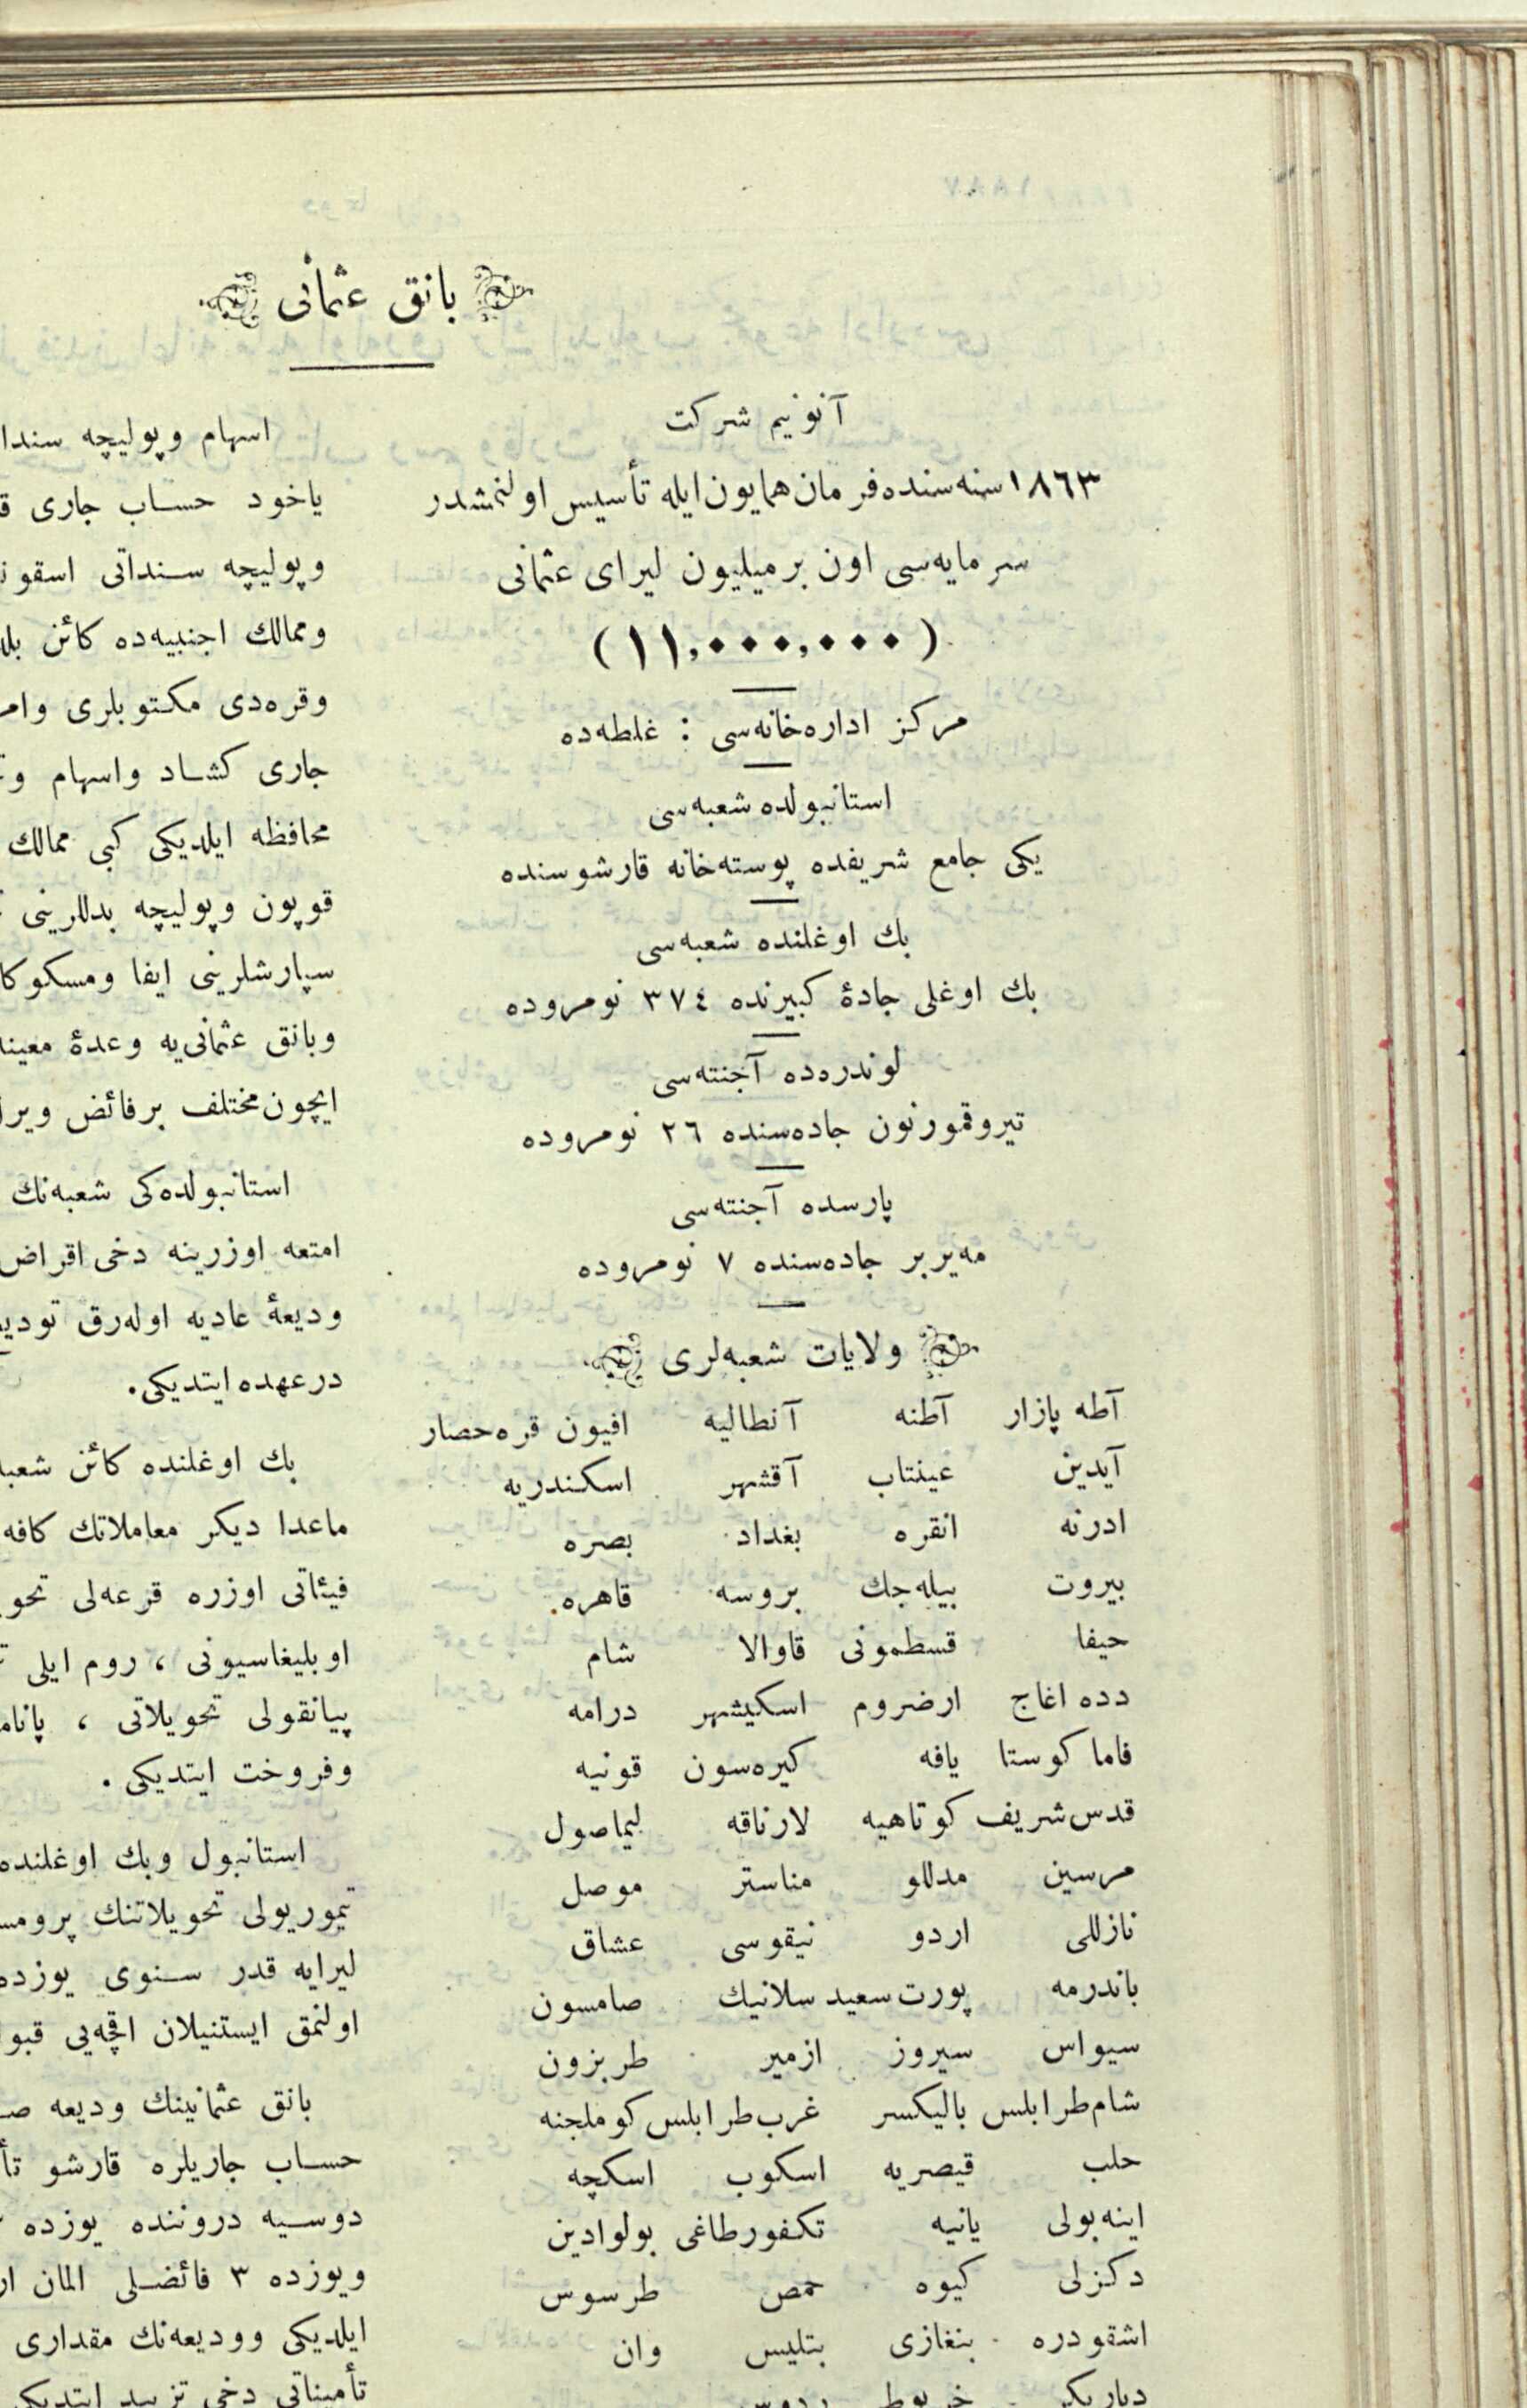 بانق عثمانی
آنونیم شرکت
۱۸٦۳ سنه‌سنده فرمان همایون ایله تأسیس اولنمشدر
سرمایه‌سی اون بر میلیون لیرای عثمانی
(۱۱,۰۰۰,۰۰۰)
مرکز اداره‌خانه‌سی : غلطه‌ده
استانبولده شعبه‌سی
یکی جامع شریفده پوسته‌خانه قارشوسنده
بك اوغلنده شعبه‌سی
بك اوغلی جادۀ کبیرنده ۳۷٤ نومروده
لوندره‌ده آجنته‌سی
تیروقمورنون جاده‌سنده ۲٦ نومروده
پارسده آجنته‌سی
مه‌یربر جاده‌سنده ۷ نومروده
ولایات شعبه‌لری
آطه پازار آطنه آنطالیه افیون قره‌حصار
آیدین عینتاب آقشهر اسکندریه
ادرنه انقره بغداد بصره
بیروت بیله‌جك بروسه قاهره
حیفا قسطمونی قاوالا شام
دده اغاج ارضروم اسکیشهر درامه
فاما کوستا یافه کیره‌سون قونیه
قدس‌شریف کوتاهیه لارناقه لیماصول
مرسین مدللو مناستر موصل
نازللی اردو نیقوسی عشاق
باندرمه پورت‌سعید سلانیك صامسون
سیواس سیروز ازمیر طربزون
شام‌طرابلس بالیکسر غرب‌طرابلس کوملجنه
حلب قیصریه اسکوب اسکچه
اینه‌بولی یانیه تکفورطاغی بولوادین
دکزلی کیوه حمص طرسوس
اشقودره بنغازی بتلیس وان
دیاربکر خربوط ردوس
اسهام وپولیچه
یاخود حساب جاری
وپولیچه سنداتی
وممالك اجنبیه‌ده کائن
وقره‌دی مکتوبلری
جاری کشاد واسهام
محافظه ایلدیکی کبی ممالك
قوپون وپولیچه بدللرینی
سپارشلرینی ایفا
وبانق عثمانی‌یه وعدۀ
ایچون مختلف برفائض
استانبولده‌کی شعبه‌نك
امتعه اوزرینه دخی اقراض
ودیعۀ عادیه اوله‌رق
درعهده ایتدیکی.
بك اوغلنده کائن
ماعدا دیکر معاملاتك کافه
فیئاتی اوزره قرعه‌لی
اوبلیغاسیونی ، روم ایلی
پیانقولی تحویلاتی ،
وفروخت ایتدیکی .
استانبول وبك اوغلنده
تیموریولی تحویلاتنك
لیرایه قدر سنوی یوزده
اولنمق ایستنیلان اقچه‌یی
بانق عثمانینك ودیعه
حساب جاریلره قارشو
دوسیه دروننده یوزده
ویوزده ۳ فائضلی المان
ایلدیکی وودیعه‌نك مقداری
تأمیناتی دخی تزیید ایتدیکی